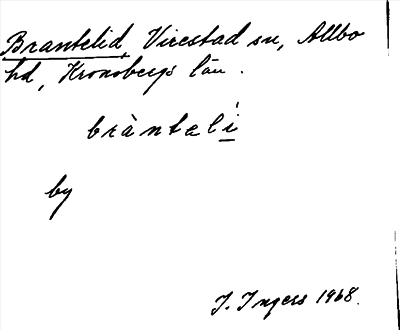 Brantelid, Virestad sn, Allbo
hd, Kronobergs län.
bràntelí
by
I. Ingers 1968.